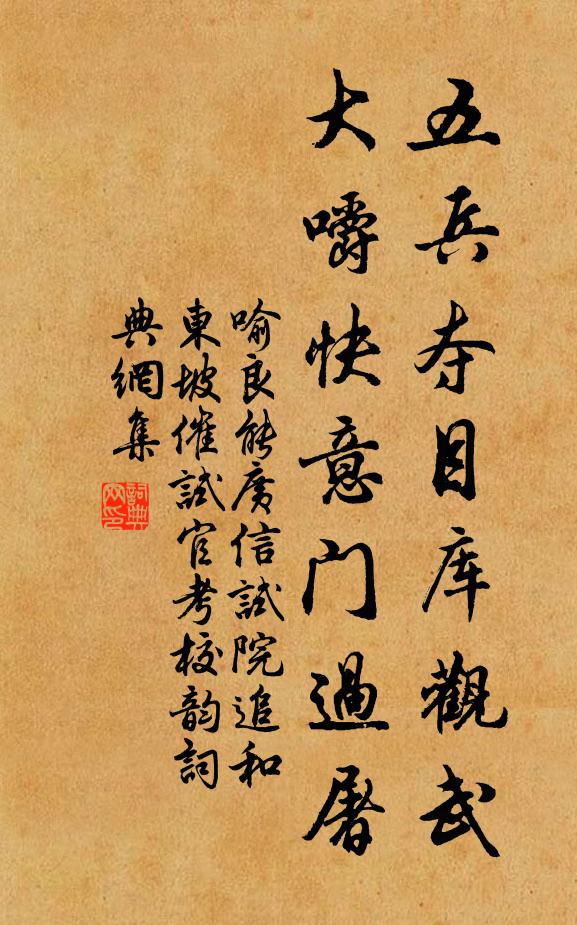 五兵夺目库觀武
大嚼快意门過屠
喻良能廣信試院追和
東坡催試官考校韵詞
典網集
詞典网印